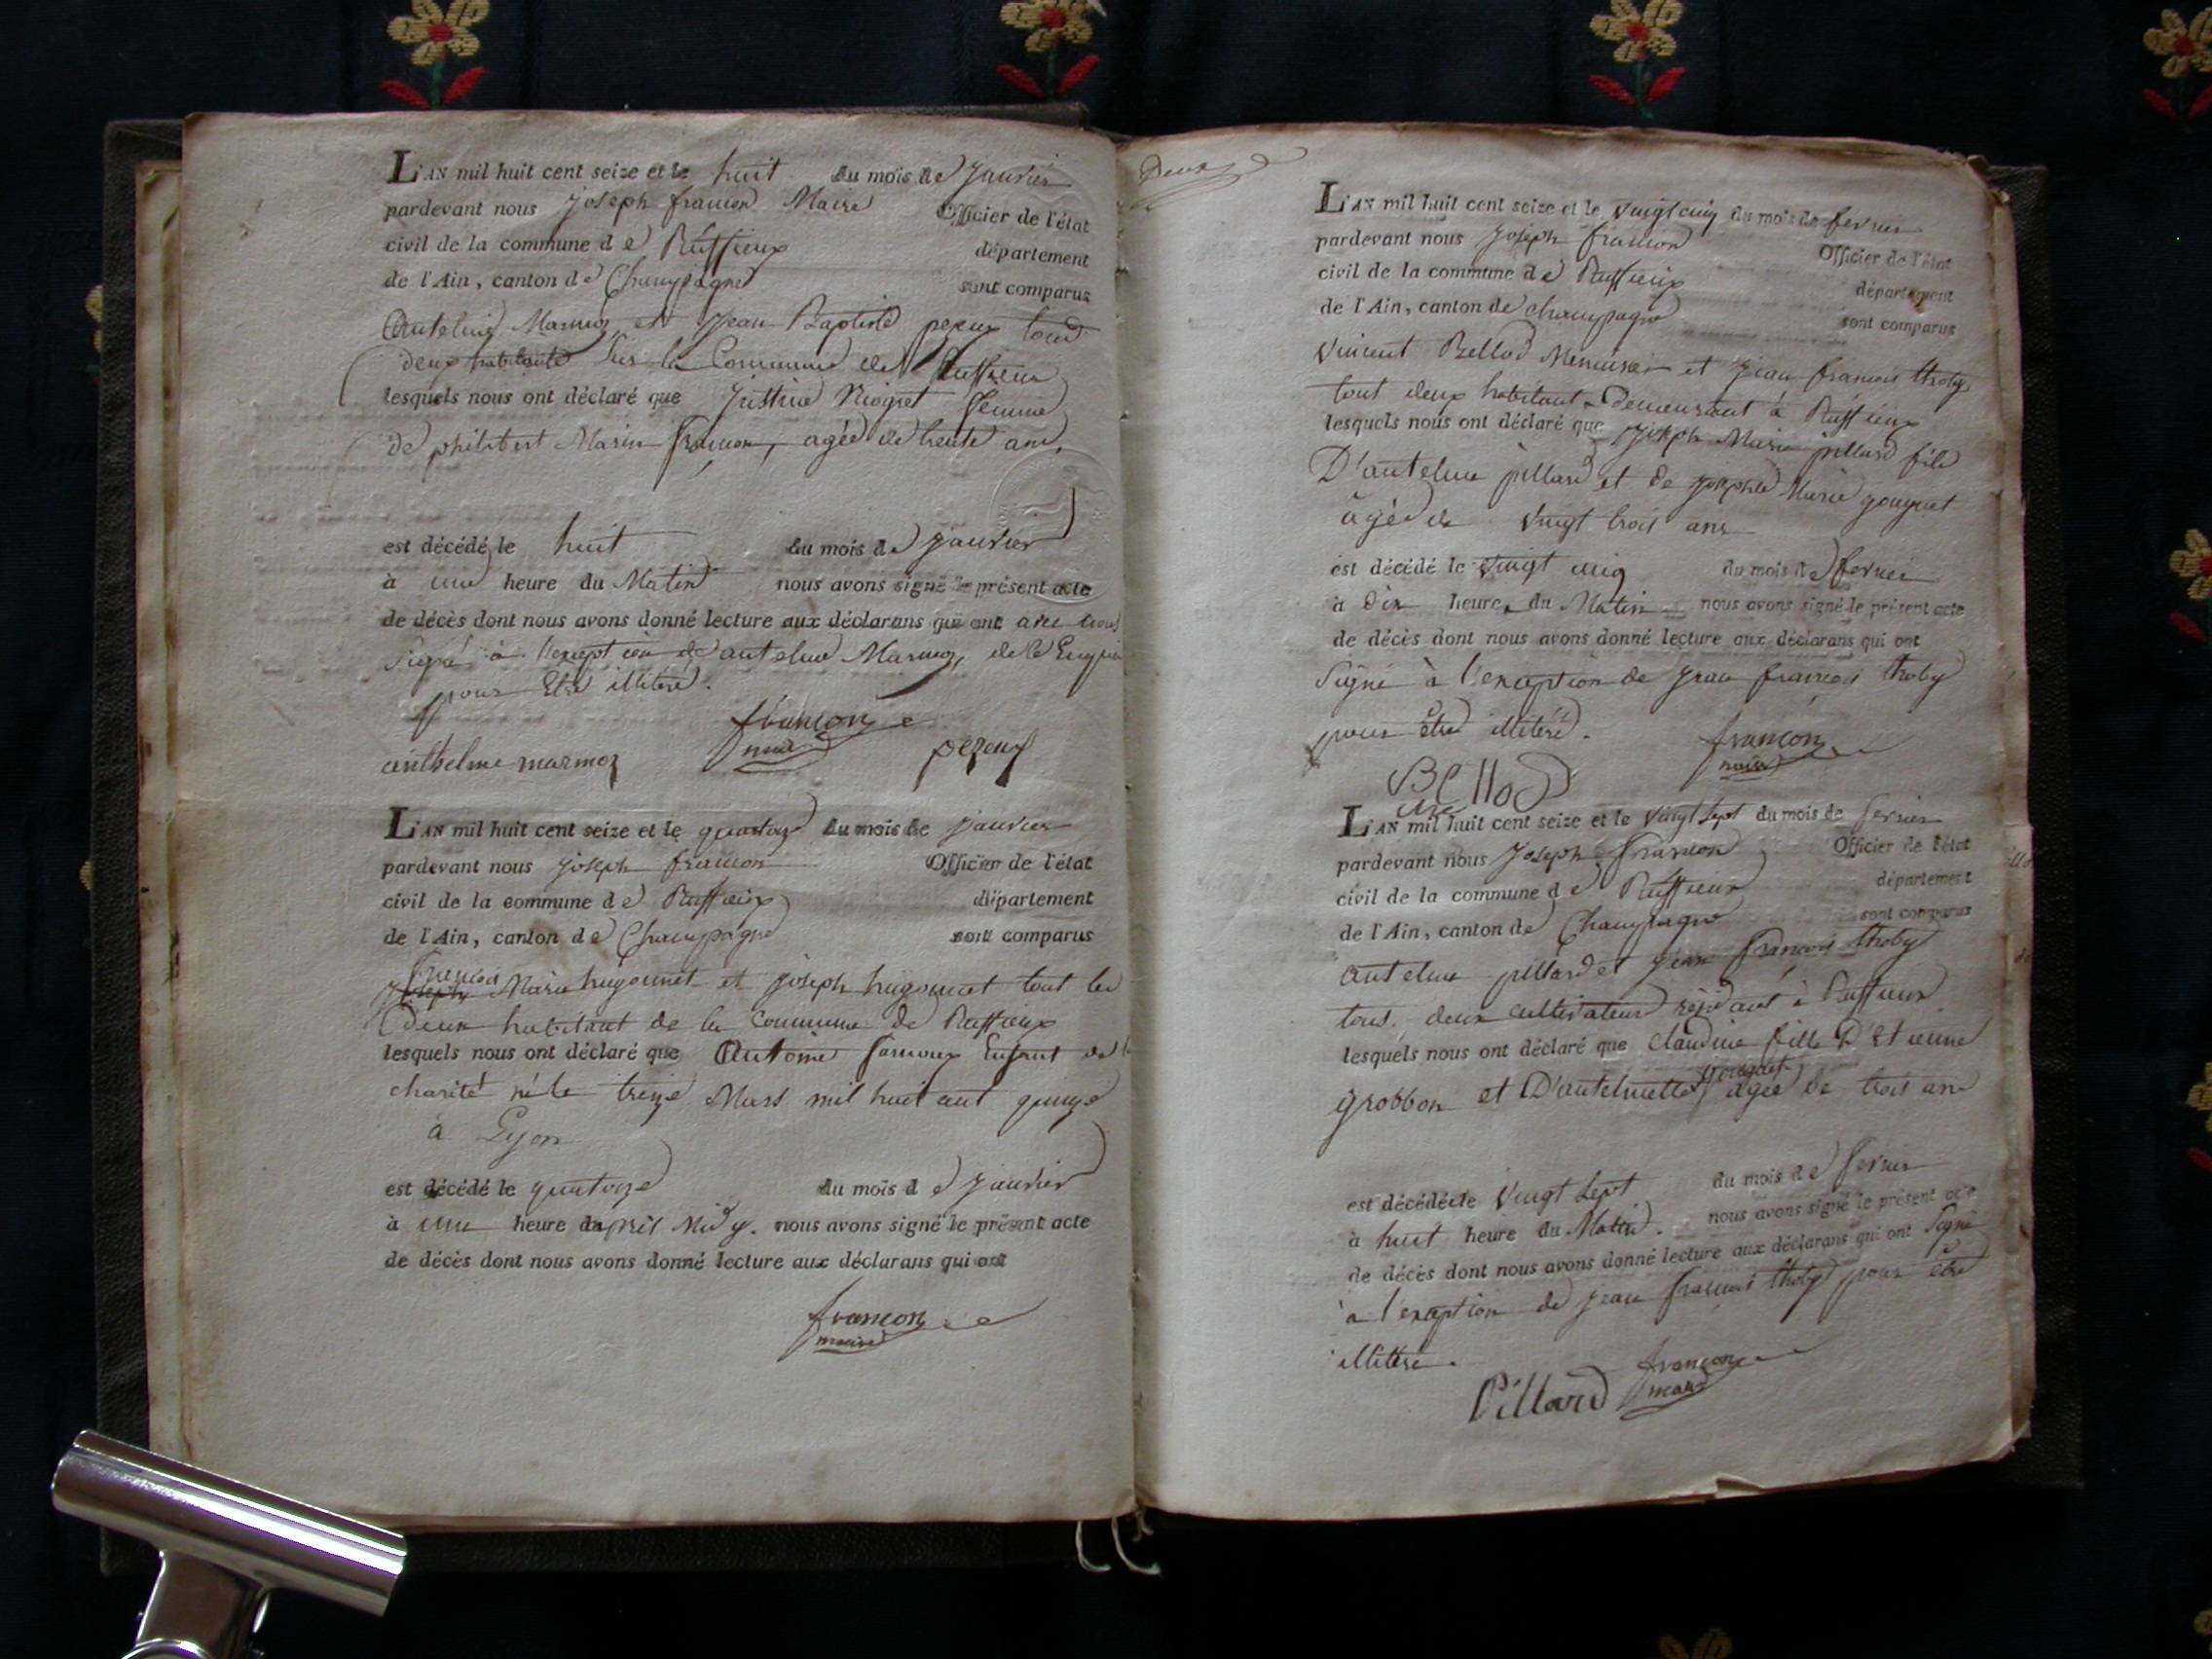 L'AN mil huit cent seize et le huit du mois de janvier
pardevant nous joseph francon Maire Officier de l'état
civil de la commune de Ruffieux département
de l'Ain, canton de Champagne sont comparus
Antelme Marmoz et Jean Baptiste pezeux tous
deux habitants sur la Commune de Ruffieux
lesquels nous ont déclaré que Justine Niogret femme
de philibert Marin francon, agée de trente ans,
est décédé le huit du mois de janvier
à une heure du Matin nous avons signé le présent acte
de décès dont nous avons donné lecture aux déclarans qui ont avec nous
signé à l'exception de antelme Marmoz, de le Enquis
pour Etre illitéré.
francon
maire
anthelme marmoz pezeux
L'AN mil huit cent seize et le quatorze du mois de janvier
pardevant nous joseph francon Officier de l'état
civil de la commune de Ruffieux département
de l'Ain, canton de Champagne sont comparus
francois
joseph Marie hugonnet et joseph hugonnet tout les
Deux habitant de la commune de Ruffieux
lesquels nous ont déclaré que Antoine Enfant de
charité né le treize Mars mil huit cent quinze
à Lyon
est décédé le quatorze du mois de janvier
à une heure daprès Midy. nous avons signé le présent acte
de décès dont nous avons donné lecture aux déclarans qui ont
francon
maire
Deux
L'AN mil huit cent seize et le vingt cinq du mois de fevrier
pardevant nous joseph francon Officier de l'état
civil de la commune de Ruffieux département
de l'Ain, canton de champagne sont comparus
vincent Bellod Menuisier et jean francois thoby
tout deux habitant demeurant à Ruffieux
lesquels nous ont déclaré que joseph Marie pillard fils
D'antelme pillard et de josephte Marie gouget
agé de vingt trois ans
est décédé le vingt cinq du mois de fevrier
à Dix heure du Matin nous avons signé le présent acte
de décès dont nous avons donné lecture aux déclarans qui ont
signé à l'exception de jean francois thoby
pour être illitéré.
francon
maire
BEllod
L'AN mil huit cent seize et le vingt sept du mois de fevrier
pardevant nous Joseph francon Officier de l'état
civil de la commune de Ruffieux département
de l'Ain, canton de Champagne sont comparus
antelme pillard et jean francois thoby
tous deux cultivateurs résidant à Ruffieux
lesquels nous ont déclaré que claudine fille D'Etienne
gouget
grobbon et D'antelmette agée de trois ans
est décédée le vingt sept du mois de fevrier
à huit heure du Matin. nous avons signé le présent acte
de décès dont nous avons donné lecture aux déclarans qui ont signé
à l'exception de jean francois thoby pour être
illitéré.
Pillard francon
maire